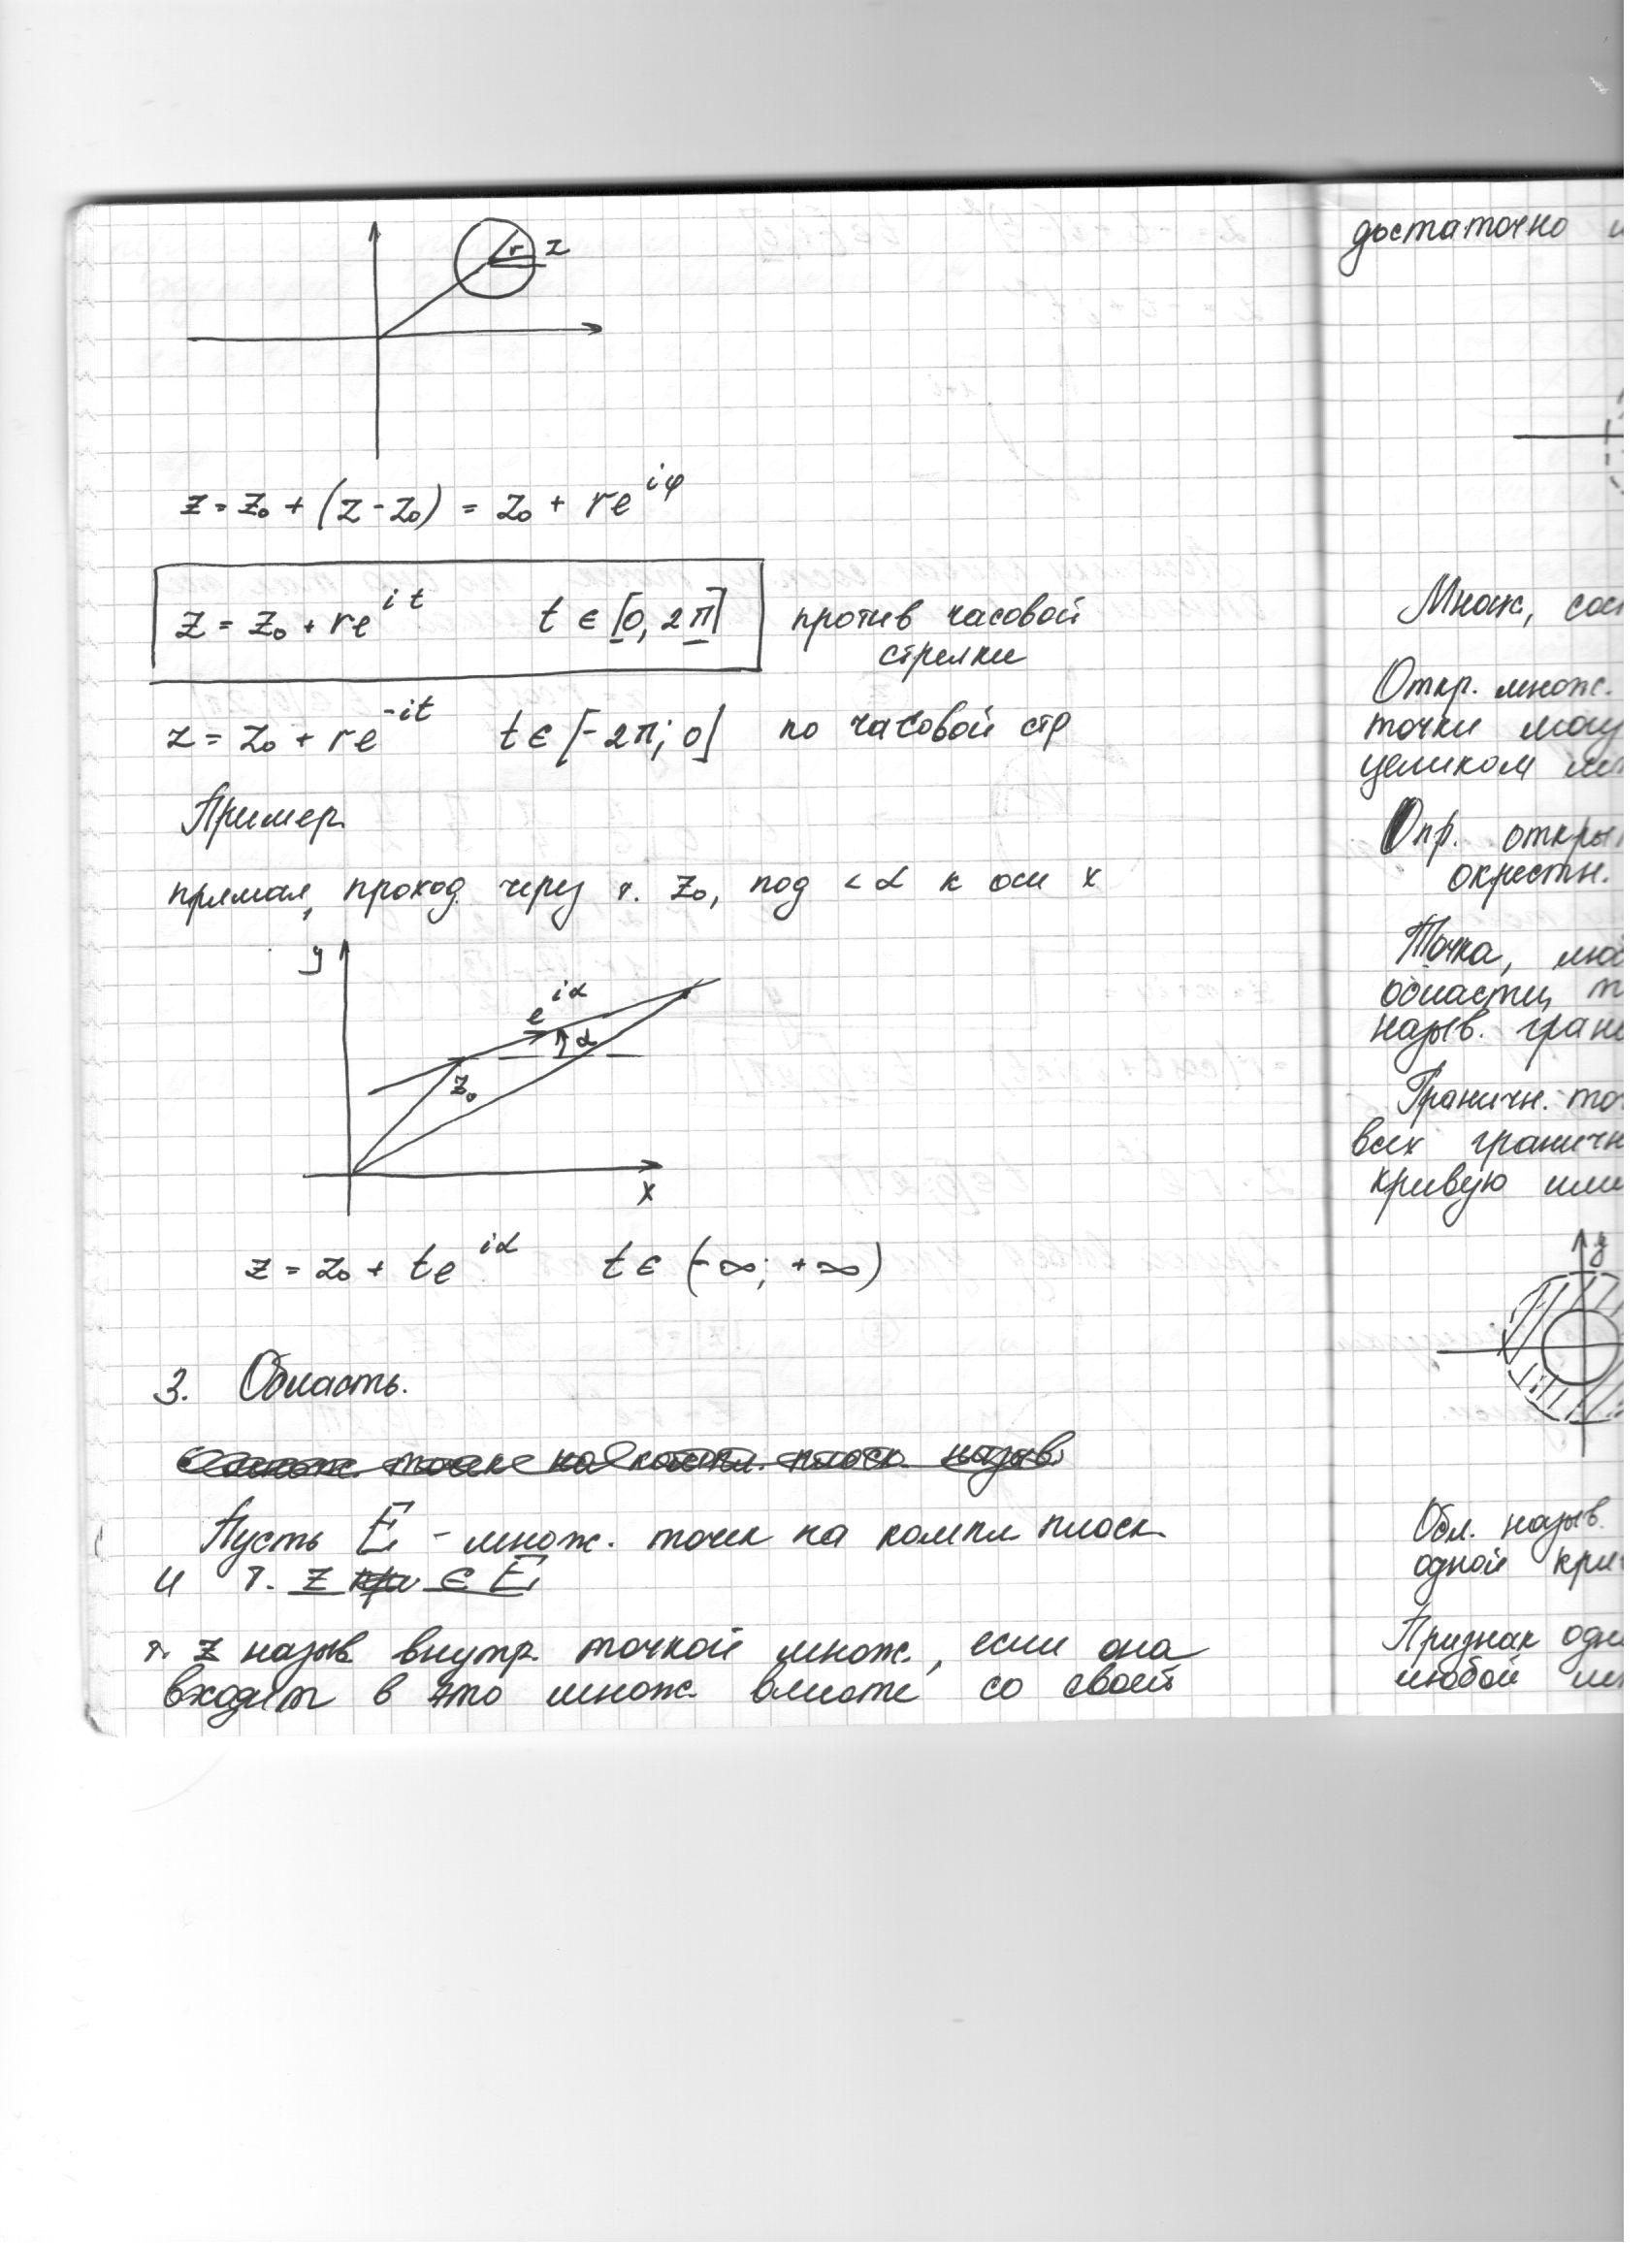 r z
z = z₀ + (z - z₀) = z₀ + re^{iφ}
z = z₀ + re^{it} t ∈ [0, 2π] против часовой
стрелки
z = z₀ + re^{-it} t ∈ [-2π; 0] по часовой стр
Пример
прямая, проход. через т. z₀, под <α к оси x
y
e^{iα}
α
z₀
x
z = z₀ + te^{iα} t ∈ (-∞; +∞)
3. Область.
множ. точек на компл. плоск. назыв.
Пусть E - множ. точек на компл плоск.
и т. z ∈ E
т. z назыв внутр. точкой множ., если она
входит в это множ. вместе со своей
достаточно
Множ, сос
Откр. множ.
точки могу
целиком
Опр. откры
окрестн.
Точка, люб
области,
назыв. гран
Граничн. то
всех граничн
кривую или
y
Обл. назыв.
одной кри
Признак одн
любой